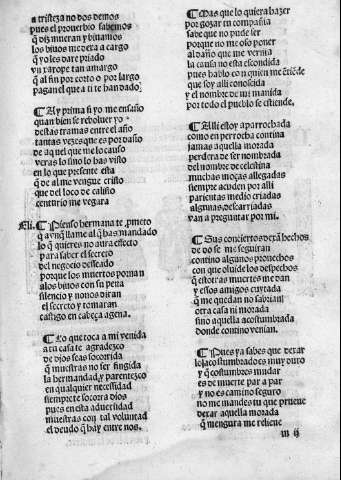 a tristeza no dos demos
pues el prouerbio sabemos
q̃ dis mueran y biuamos
los biuos me dera a cargo
q̃ yo les dare priado
vn xarope tan amargo
q̃ al fin por corto o por largo
paguen el que a ti te han dado
¶ Ay prima si yo me ensaño
quan bien se reboluer yo
destas tramas entre el año
tantas vezes que es por daño
de aquel que me lo causo
veras lo sino lo has visto
en lo que presente esta
q̃ de al me vengue cristo
que del loco de calisto
centurio me vegara
Eli. ¶ Pienso hermana te prometo
q̃ aynq̃ llame al q̃ has mandado
lo q̃ quieres no aura effecto
para saber el secreto
del negocio desseado
porque los muertos pornan
a los biuos con su pena
silencio y nonos diran
el secreto y tomaran
castigo en cabeça agena.
¶ Lo que toca a mi venida
a tu casa te agradezco
de dios seas socorrida
q̃ muestras no ser fingida
la hermandad y parentezco
en qualquier necessidad
siempre te socorra dios
pues en esta aduersidad
muestras con tal voluntad
el deudo q̃ hay entre nos.
¶ Mas que lo quiera hazer
por gozar tu compañia
sabe que no puede ser
porque no me oso poner
al daño que me vernia
la causa no esta escondida
pues hablo con quien me entiẽde
que soy alli conoscida
y el nombre de mi manida
por todo el pueblo se estiende.
¶ Alli estoy aparrochada
como en perrocha contina
jamas aquella morada
perdera de ser nombrada
del nombre de celestina
muchas moças allegadas
siempre acuden por alli
parientas medio criadas
algunas descarriadas
van a preguntar por mi.
¶ Sus conciertos derã hechos
de do se me seguiran
contino algunos prouechos
con que oluide los despechos
q̃ estotras muertes me dan
y essos amigos cuytada
q̃ me quedan no sabrian
otra casa ni morada
sino aquella acostumbrada
donde contino venian.
¶ Pues ya sabes que dexar
lo acostumbrado es muy duro
y q̃ costumbres mudar
es de muerte par a par
y no es camino seguro
no me mandes tu que prueue
dexar aquella morada
q̃ mengura me reliene
m ij